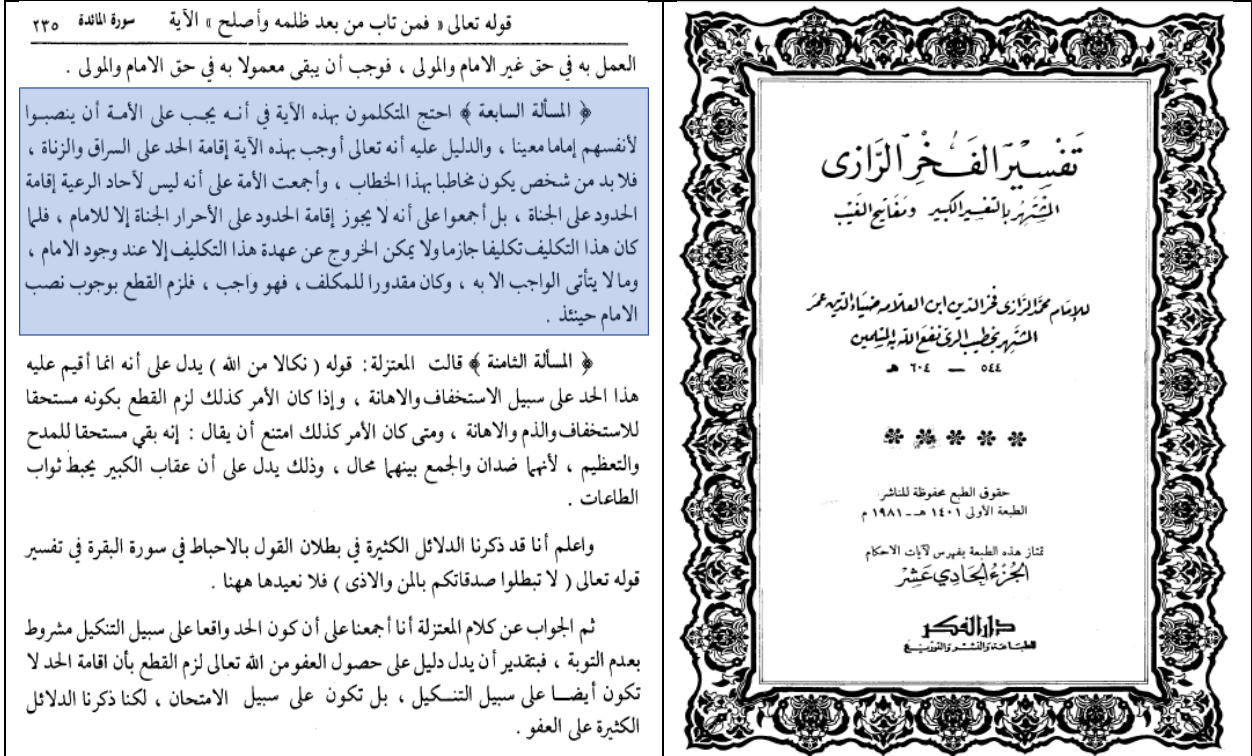 قوله تعالى « فمن تاب من بعد ظلمه وأصلح » الآية سورة المائدة ٢٣٥
العمل به في حق غير الامام والمولى ، فوجب أن يبقى معمولا به في حق الامام والمولى .
﴿ المسألة السابعة ﴾ احتج المتكلمون بهذه الآية في أنه يجب على الأمة أن ينصبوا
لأنفسهم إماما معينا ، والدليل عليه أنه تعالى أوجب بهذه الآية إقامة الحد على السراق والزناة ،
فلا بد من شخص يكون مخاطبا بهذا الخطاب ، وأجمعت الأمة على أنه ليس لآحاد الرعية إقامة
الحدود على الجناة ، بل أجمعوا على أنه لا يجوز إقامة الحدود على الأحرار الجناة إلا للامام ، فلما
كان هذا التكليف تكليفا جازما ولا يمكن الخروج عن عهدة هذا التكليف إلا عند وجود الامام ،
وما لا يتأتى الواجب الا به ، وكان مقدورا للمكلف ، فهو واجب ، فلزم القطع بوجوب نصب
الامام حينئذ .
﴿ المسألة الثامنة ﴾ قالت المعتزلة : قوله ( نكالا من الله ) يدل على أنه انما أقيم عليه
هذا الحد على سبيل الاستخفاف والاهانة ، وإذا كان الأمر كذلك لزم القطع بكونه مستحقا
للاستخفاف والذم والاهانة ، ومتى كان الأمر كذلك امتنع أن يقال : إنه بقي مستحقا للمدح
والتعظيم ، لأنهما ضدان والجمع بينهما محال ، وذلك يدل على أن عقاب الكبير يحبط ثواب
الطاعات .
واعلم أنا قد ذكرنا الدلائل الكثيرة في بطلان القول بالاحباط في سورة البقرة في تفسير
قوله تعالى ( لا تبطلوا صدقاتكم بالمن والاذى ) فلا نعيدها ههنا .
ثم الجواب عن كلام المعتزلة أنا أجمعنا على أن كون الحد واقعا على سبيل التنكيل مشروط
بعدم التوبة ، فبتقدير أن يدل دليل على حصول العفو من الله تعالى لزم القطع بأن اقامة الحد لا
تكون أيضا على سبيل التنكيل ، بل تكون على سبيل الامتحان ، لكنا ذكرنا الدلائل
الكثيرة على العفو .
تفسير الفخر الرازى
المشتهر بالتفسير الكبير ومفاتيح الغيب
للإمام محمد الرازى فخر الدين ابن العلامه ضياء الدين عمر
المشتهر بخطيب الرى نفع الله به المسلمين
٥٤٤ — ٦٠٤ هـ
حقوق الطبع محفوظة للناشر
الطبعة الأولى ١٤٠١ هـ — ١٩٨١ م
تمتاز هذه الطبعة بفهرس لآيات الاحكام
الجزء الحادي عشر
دار الفكر
للطباعة والنشر والتوزيع